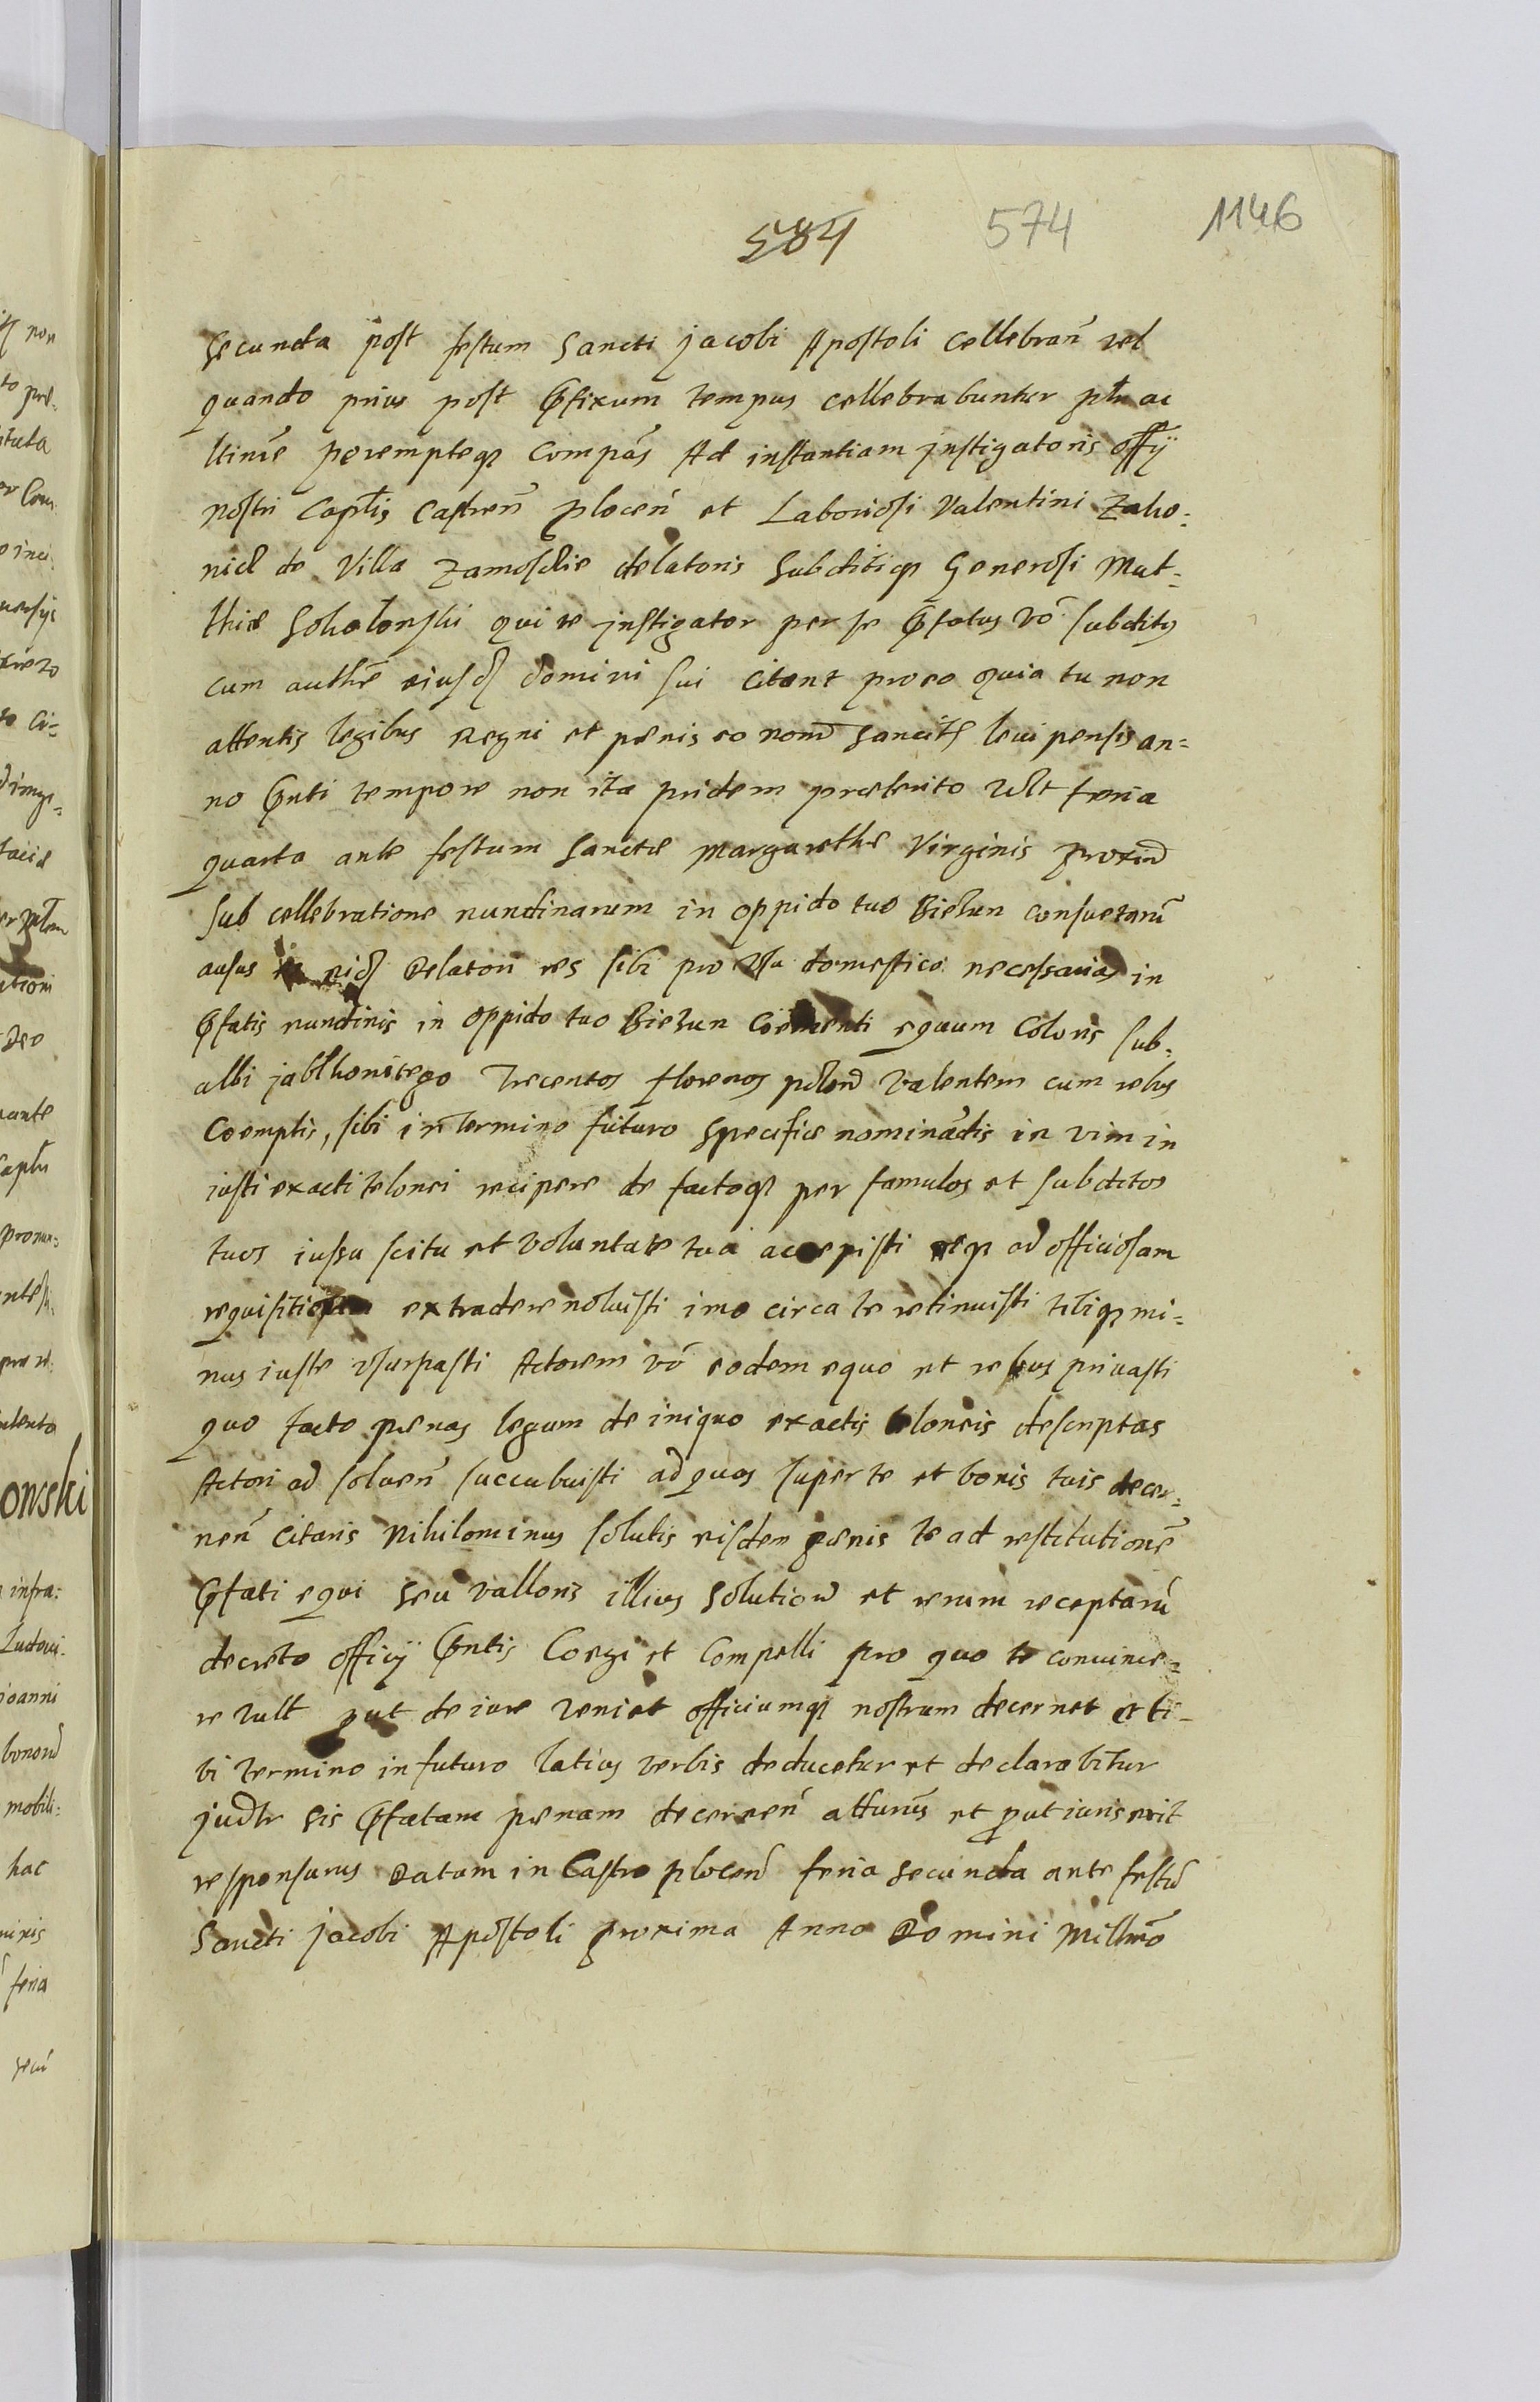 584 574 1146
Secunda post festum Sancti Jacobi Apostoli Cellebran̄ vel
quando prius post Pfixum tempus cellebrabuntur plr̄ ac
ltim̄e perempteq3 Compās Ad instantiam jnstigatoris offÿ
nostri Captlis Castren̄ plocen̄ et Laboriosi Valentini Zaho=
nicl de Villa Zamosclie delatoris Subditiq3 Generosi Mat=
thiæ Soholonski qui te jnstigator per se Pfatus vō subditus
cum authē eiusd domini sui citant pro eo quia tu non
attentis legibus Regni et pœnis eo nom̄ Sancitis leui pensis an=
no Pnti tempore non ita pridem præterito vlt feria
quarta ante festum Sanctæ Margarethæ Virginis proxim̄
Sub cellebratione nundinarum in oppido tuo Biezun consuetarū
ausus eid Delatori res sibi pro vsu domestico necessarias in
Pfatis nundinis in oppido tuo Biezun Coementi equum Coloris sub=
albi jablkonitego Trecentos florenos polon̄ Valentem cum rebus
Coemptis, sibi in Termino futuro Specifice nominādis in vim in
iusti exacti telonei recipere de factoq3 per famulos et subditos
tuos iussu scitu et voluntate tua accepisti eq3 ad officiosam
requisitionem extradere noluisti imo circa te retinuisti tibiq3 mi=
nus iuste vsurpasti Actorem vō eodem equo et rebus priuasti
quo facto pœnas legum de iniquo exactis teloneis descriptas
Actori ad soluen̄ succubuisti ad quas super te et bonis tuis decer=
nen̄ Citaris Nihilominus solutis eisdem pœnis te ad restitutionē
Pfati equi seu valloris illius Solution̄ et rerum receptarū
decreto officÿ Pntis Coegi et Compelli pro quo te conuince=
re vult put de iure veniet officiumq3 nostrum decernet et ti=
bi termino in futuro latius verbis deducetur et declarabitur
judtr sis Pfatam pœnam decernen̄ atturus et put iuris erit
responsurus Datum in Castro plocen̄ feria secunda ante festū
Sancti Jacobi Apostoli proxima Anno Domini Millmō